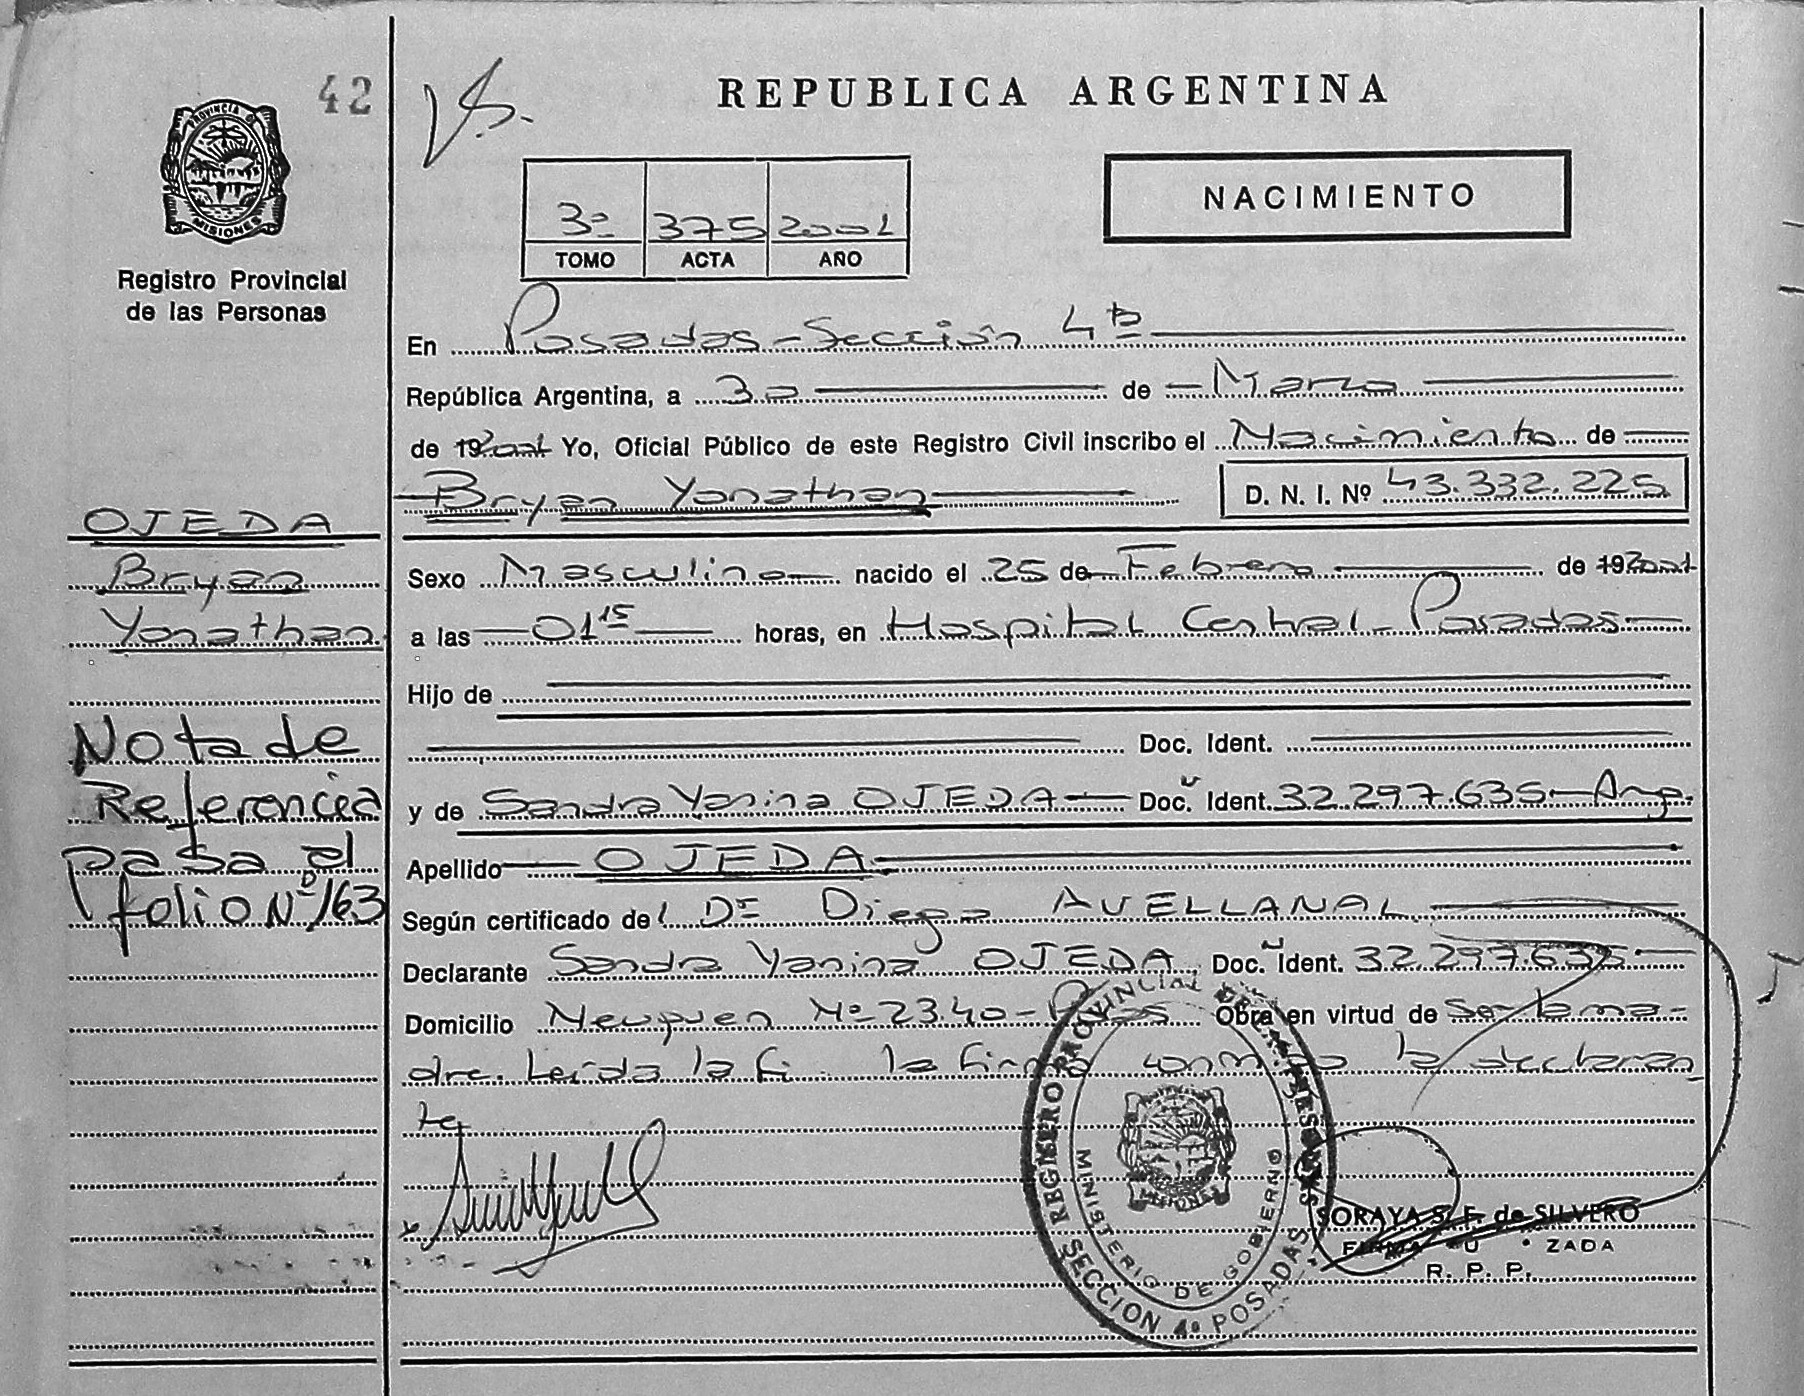 42
V.S.
REPUBLICA ARGENTINA
PROVINCIA DE MISIONES
Registro Provincial
de las Personas
3º 375 2001
TOMO ACTA AÑO
NACIMIENTO
En Posadas - Sección 4ta
República Argentina, a 30 de Marzo
de 192001 Yo, Oficial Público de este Registro Civil inscribo el Nacimiento de
Bryan Yonathan D. N. I. Nº 43.332.225
OJEDA
Bryan
Yonathan
Sexo Masculino nacido el 25 de Febrero de 192001
a las 01 15 horas, en Hospital Central - Posadas
Hijo de
Doc. Ident.
y de Sandra Yanina OJEDA Doc. Ident. 32.297.635 - Arg.
Apellido OJEDA
Según certificado de l Dr Diego AVELLANAL
Declarante Sandra Yanina OJEDA Doc. Ident. 32.297.635
Domicilio Neuquen Nº 2340 - Obra en virtud de Ser la ma-
dre. Leída la firma conmigo la declaran
te
Nota de
Referencia
pasa al
folio Nº 163
REGISTRO PROVINCIAL DE LAS PERSONAS
SECCION 4º POSADAS
MINISTERIO DE GOBIERNO
MISIONES
SORAYA S. F. de SILVERO
FIRMA ZADA
R. P. P.